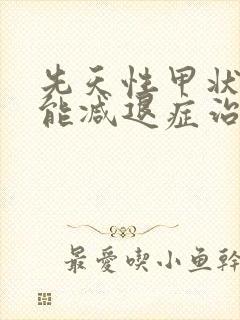 先天性甲状
能减退症治
最愛喫小鱼幹